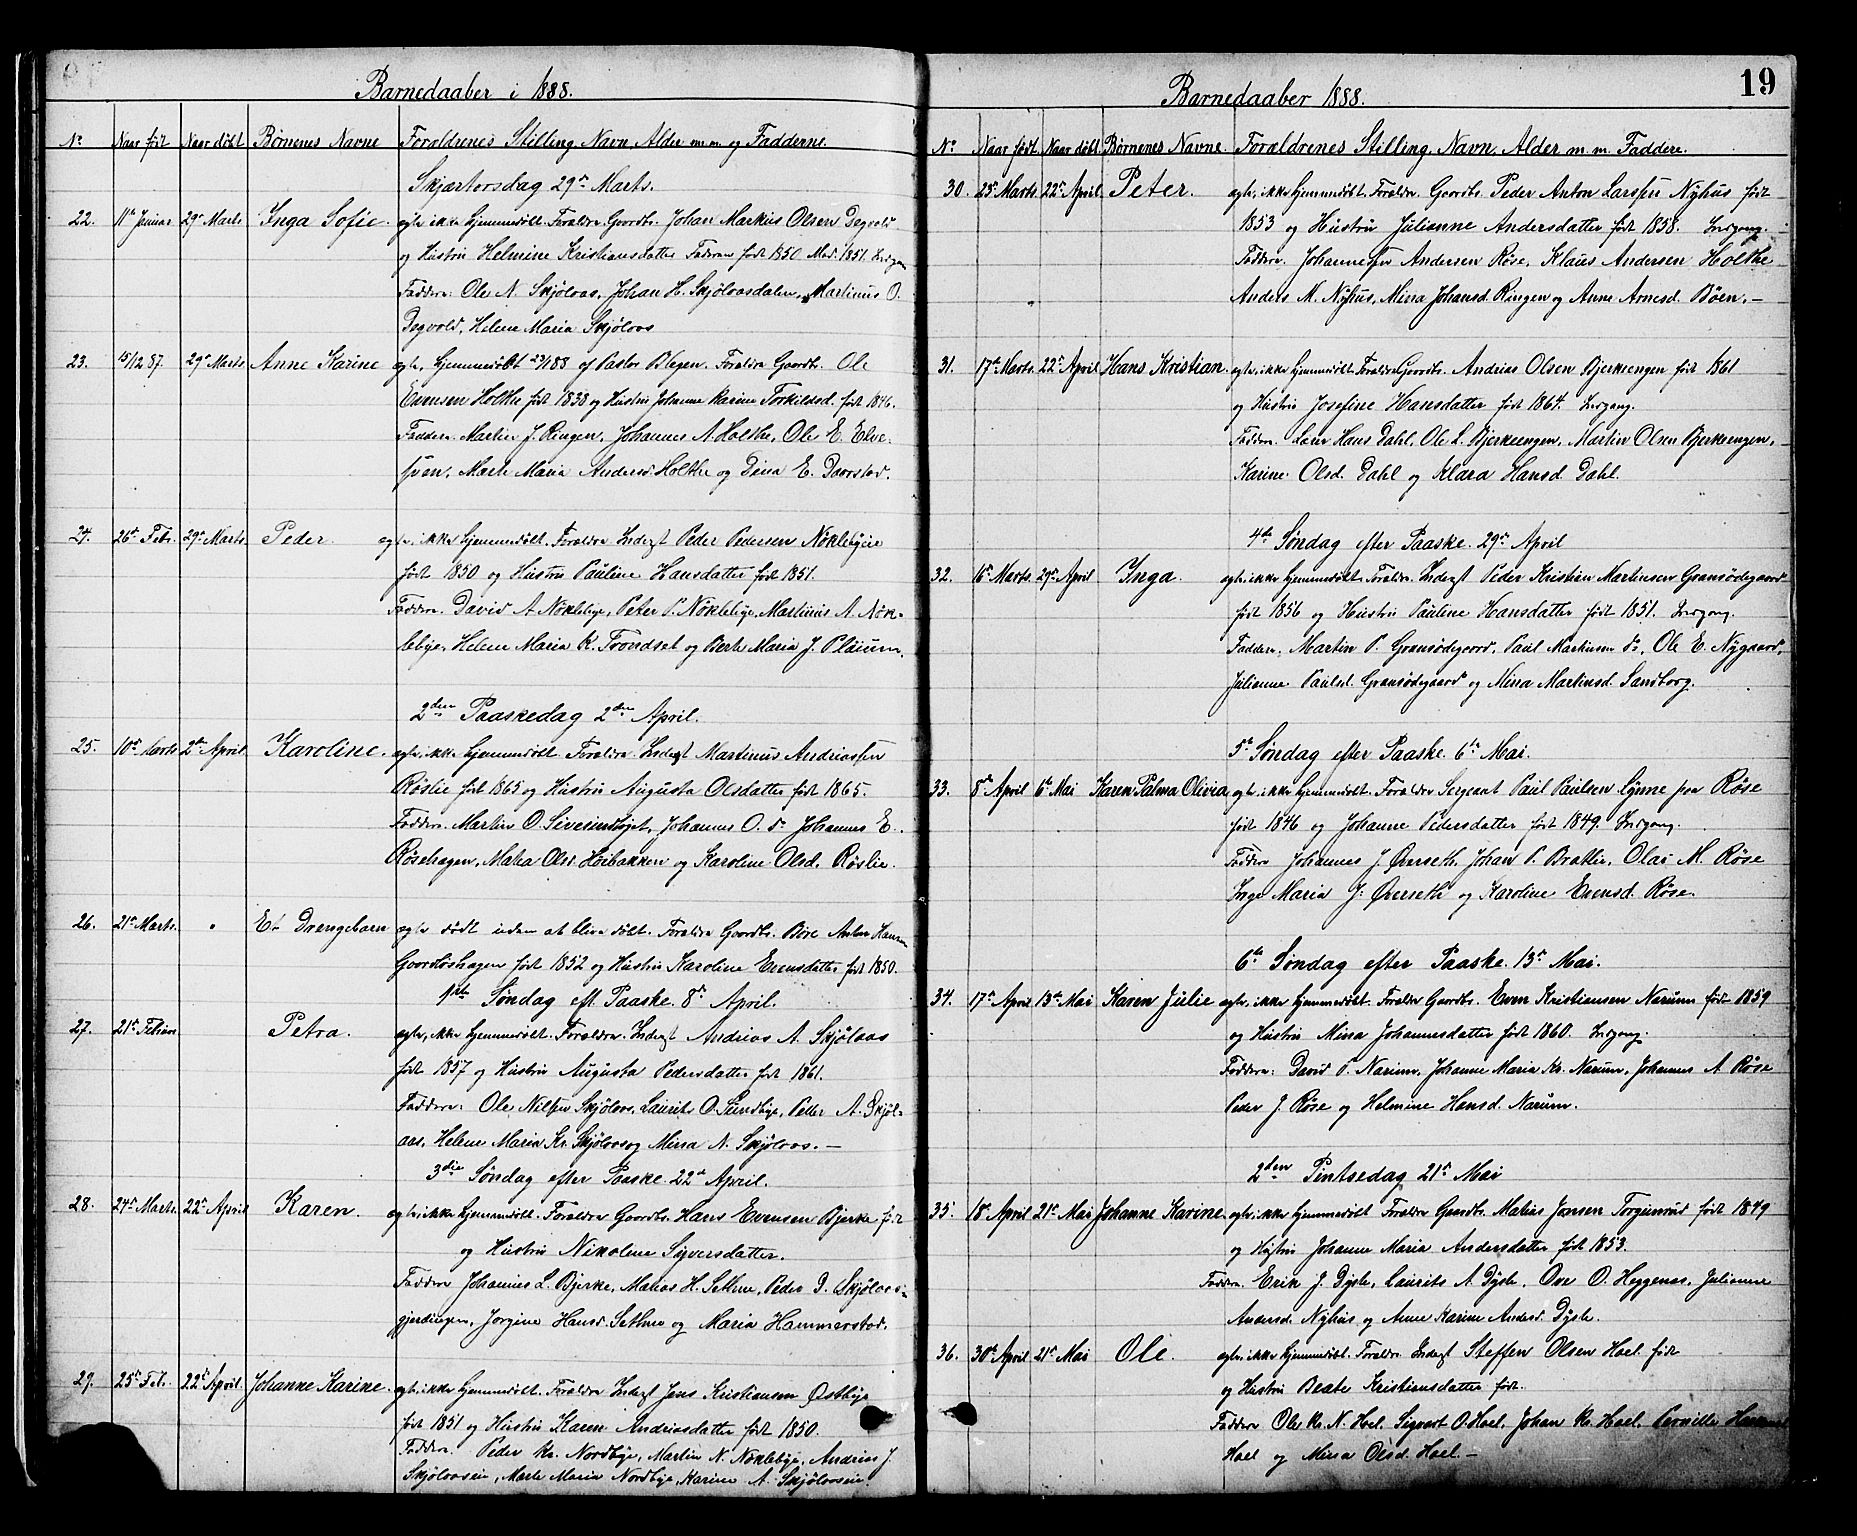 Barnedaaber i 1888.
No. Naar født Naar døbt Børnenes Navne Forældrenes Stilling Navn Alder m.m. og Fadderne.
Skjærtorsdag 29de Marts.
22. 11te Januar 29de Marts Inga Sofie. ægte, ikke hjemmedøbt. Forældre Gaardbr. Johan Markus Olsen Degvold
og Hustru Helmine Kristiansdatter Faderen født 1850 Mod. 1851. Indgang
Faddere: Ole N. Skjølaas, Johan H. Skjølaasdalen, Martinus O.
Degvold, Helene Maria Skjølaas
23. 15/12 87. 29de Marts Anne Karine ægte, hjemmedøbt 23/1 88 af Pastor Blagen. Forældre Gaardbr. Ole
Evensen Holthe født 1838 og Hustru Johanne Karine Torkildsd. født 1846.
Faddere. Martin J. Ringen, Johannes A. Holthe, Ole E. Elve-
sven, Marte Maria Andersd. Holthe og Dina E. Daarstad.
24. 26de Febr. 29de Marts. Peder. ægte, ikke hjemmedøbt. Forældre Inderst Peder Pedersen Nøklebyeie
født 1850 og Hustru Pauline Hansdatter født 1851.
Faddere. David A. Nøklebye, Peter P. Nøklebye, Martinus A. Nøk-
lebye, Helene Maria K. Trondset og Berte Maria J. Plaium.
2den Paaskedag 2den April.
25. 10de Marts 2den April Karoline. ægte, ikke hjemmedøbt Forældre Inderst Martinus Andriassen
Røslie født 1865 og Hustru Augusta Olsdatter født 1865.
Faddere. Martin O. Sivesindhøjet, Johannes O. do Johannes E.
Røsehagen, Mathea Olsd. Høibakken og Karoline Olsd. Røslie.
26. 21de Marts. Et Drengebarn ægte død inden at blive døbt. Forældre Gaardbr. Bore Anton Hansen
Gaardløshagen født 1852 og Hustru Karoline Evensdatter født 1850.
1ste Søndag eft. Paaske. 8de April.
27. 21de Februar Petra. ægte, ikke hjemmedøbt. Forældre. Inderst Andrias A. Skjølaas
født 1857 og Hustru Augusta Pedersdatter født 1861.
Faddere: Ole Nilsen Skjølaas, Laurits O. Sundbye, Peder A. Skjøl-
aas, Helene Maria Kr. Skjølaas og Mina N. Skjølaas. —
3die Søndag efter Paaske 22de April.
28. 24de Marts. 22de April Karen. ægte, ikke hjemmedøbt. Forældre Gaardbr. Hans Evensen Bjerke født
og Hustru Nikoline Syversdatter.
Faddere Johannes L. Bjerke, Matias H. Sethne, Peder D. Skjølaas-
gjerdingen, Jorgine Hansd. Sethne og Maria Hammerstad.
29. 25de Feb. 22de April. Johanne Karine. ægte, ikke hjemmedøbt. Forældre Inderst Jens Kristiansen Østbye
født 1851 og Hustru Karen Andriasdatter født 1850.
Faddere. Peder Kr. Nordbye, Martin N. Nøklebye, Andrias J.
Skjølaaseie, Marte Maria Nordbye, Karine A. Skjølaaseie.
19
Barnedaaber 1888.
No. Naar født Naar døbt Børnenes Navne. Forældrenes Stilling Navn, Alder m.m. Faddere.
30. 25de Marts. 22de April Peter. ægte, ikke hjemmedøbt. Forældre Gaardbr. Peder Anton Larssen Nyhus født
1853 og Hustru Julianne Andersdatter født 1858. Indgang.
Faddere. Johannesen Andersen Røse, Klaus Andersen Holthe
Anders M. Nyhus, Mina Johansd. Ringen og Anne Arnesd. Bøen. —
31. 17de Marts. 22de April Hans Kristian. ægte, ikke hjemmedøbt Forældre Gaardbr. Andrias Olsen Bjerkeengen født 1861
og Hustru Josefine Hansdatter født 1864. Indgang.
Faddere. Lars Hans Dahl, Ole L. Bjerkeengen, Martin Olsen Bjerkeengen,
Karine Olsd. Dahl og Klara Hansd. Dahl.
4de Søndag efter Paaske. 29de April
32. 16de Marts. 29de April Inga. ægte, ikke hjemmedøbt. Forældre. Inderst Peder Kristian Martinsen Gransødegaard
født 1856 og Hustru Pauline Hansdatter født 1851. Indgang.
Faddere. Martin P. Gransødegaard, Paul Markussen do, Ole E. Nygaard,
Julianne Paulsd. Gransødegaard og Mina Martinsd. Sandborg.
5te Søndag efter Paaske. 6te Mai.
33. 8de April 6te Mai Karen Palma Olivia ægte, ikke hjemmedøbt. Forældre Sergeant Paul Paulsen Lynne paa Røse
født 1846 og Johanne Pedersdatter født 1849. Indgang.
Faddere Johannes J. Øverseth, Johan P. Bratlie, Olai M. Røse
Inge Maria J. Øverseth og Karoline Evensd. Røse.
6te Søndag efter Paaske. 13de Mai.
34. 17de April 13de Mai Karen Julie ægte, ikke hjemmedøbt. Forældre Gaardbr. Even Kristiansen Narum født 1859
og Hustru Mina Johannesdatter født 1860. Indgang.
Faddere: David P. Narum, Johanne Maria Kr. Narum, Johannes A. Røse
Peder J. Røse og Helmine Hansd. Narum.
2den Pintsedag 21de Mai
35. 18de April 21de Mai Johanne Karine. ægte, ikke hjemmedøbt Forældre Gaardbr. Matias Jonsen Torgunrud født 1849
og Hustru Johanne Maria Andersdatter født 1853.
Faddere. Erik J. Dyste, Laurits A. Dyste, Ove O. Heggenes, Julianne
Andersd. Nyhus og Anne Karine Andersd. Dyste.
36. 30de April 21de Mai Ole. ægte, ikke hjemmedøbt. Forældre Inderst Steffen Olsen Hoel født
og Hustru Beate Kristiansdatter født.
Faddere Ole Kr. N. Hoel, Sigvart O. Hoel, Johan Kr. Hoel, Pernille
Hoel og Mina Olsd. Hoel. —